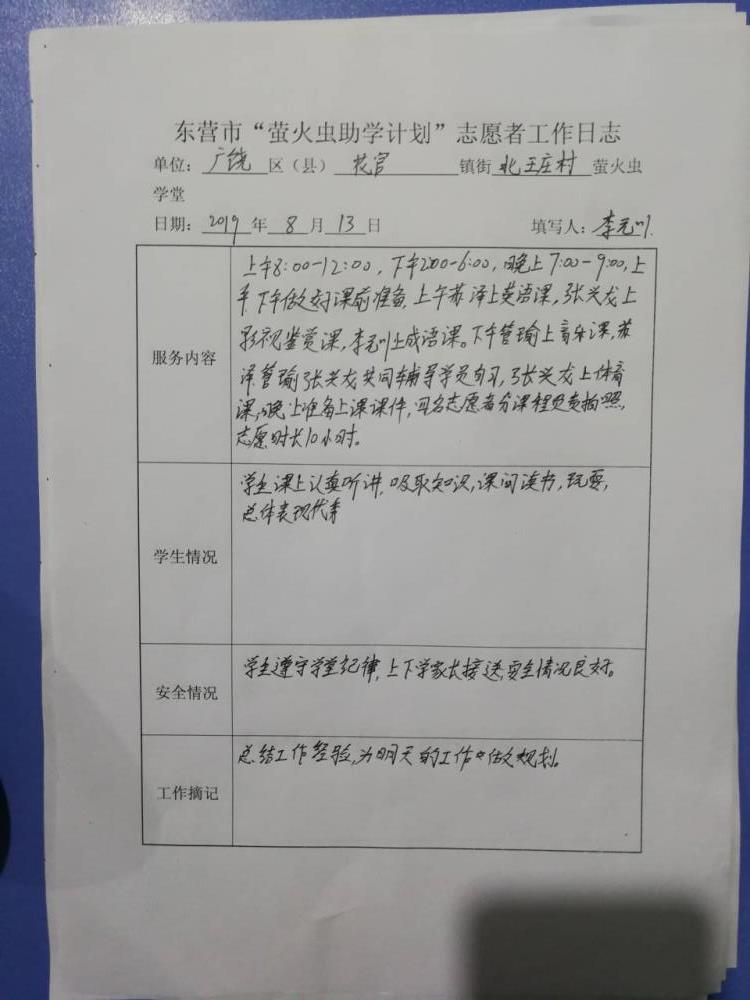 东营市“萤火虫助学计划”志愿者工作日志
单位：广饶区（县）花官镇街北王庄村萤火虫
学堂
日期：2019年8月13日 填写人：李元川
服务内容
上午8:00-12:00，下午2:00-6:00，晚上7:00-9:00，上
午下午做好课前准备，上午苏泽上英语课，张兴龙上
影视鉴赏课，李元川上成语课。下午管瑜上音乐课，苏
泽管瑜张兴龙共同辅导学员自习，张兴龙上体育
课，晚上准备上课课件，四名志愿者分课程负责拍照，
志愿时长10小时。
学生情况
学生课上认真听讲，吸取知识，课间读书，玩耍，
总体表现优秀
安全情况
学生遵守学堂纪律，上下学家长接送，安全情况良好。
工作摘记
总结工作经验，为明天的工作做规划。